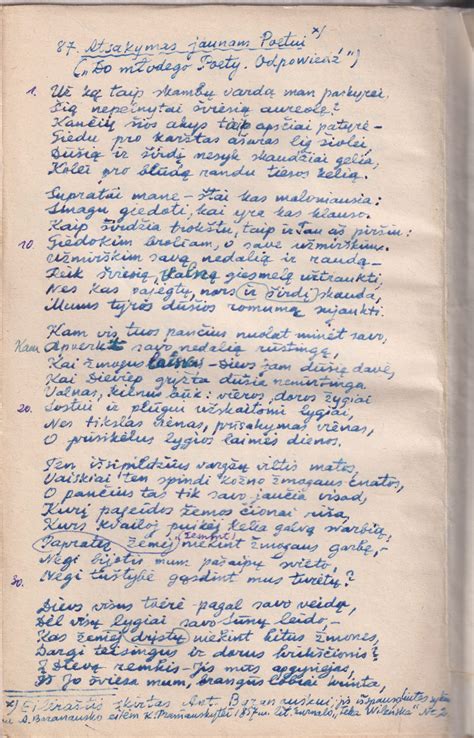 87. Atsakymas jaunam Poetui x)
("Do młodego Poety. Odpowiedź")
1. Už ką taip skambų vardą man paskyrei,
Šią nepelnytai šviesią aureolę?
Kančių šios akys taip apsčiai patyrė –
Giedu pro karštas ašaras lig šiolei,
Dūšią ir širdį nesyk skaudžiai gėlia,
Kolei pro blūdą randu tiesos kelią.
Supratai mane – štai kas maloniausia:
Smagu giedoti, kai yra kas klauso.
Kaip širdžia trokštu, taip ir tau aš piršiu:
10. Giedokim broliam, o save užmiršim.
Užmirškim savą nedalią ir raudą –
Reik šviesią, valną giesmelę užtraukti,
Nes kas pavėgtų, nors ir širdį skauda,
Mums tyros dūšios romumą sujaukti.
Kam vis tuos pančius nuolat minėt savo,
Kam Apverkt savo nedalią rūstingą,
Kai žmogus laisvas – Dievs jam dūšią davė,
Kai Dieviep grįžta dūšia nemiringa.
Valnas, kienus būk: vieros, doros žygiai
20. Sostui ir plūgui užskaitomi lygiai,
Nes tikslas vienas, prisakymas vienas,
O prisikėlus lygios laimės dienos.
Ten išsipildžius vargšų viltis matos,
Vaiskiai ten spindi kožno žmogaus cnatos,
O pančius tas tik savo jaučia visad,
Kurį pageidos žemos čionai riša,
Kurs kvailoj puikėj kelia galvą svarbią,
Papratęs žemėj (žemint) niekint žmogaus garbę, –
Negi bijotis mum pašaipų svieto,
30. Negi tuštybė gąsdint mus turėtų?
Dievs visus tvėrė pagal savo veidą,
Dėl visų lygiai savo Sūnų leido, –
Kas žemėj drįstų niekint kitus žmones,
Dargi teisingus ir dorus krikščionis?
Į Dievą remkis – Jis mūs apgynėjas,
Iš Jo šviesa mum, brangus labiai
x) Eilėraštis skirtas Ant. Baranauskui, jis išspausdintas sykiu
su A. Baranausko eilėm K. Praniauskaitei 1857 m. lit. žurnale "Teka Wileńska" Nr. 2